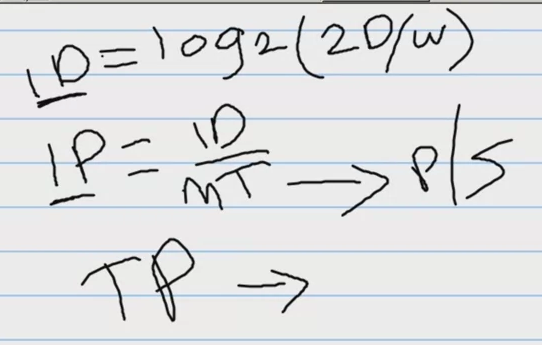 ID = log2(2D/W)
IP = ID/MT → P/S
TP →